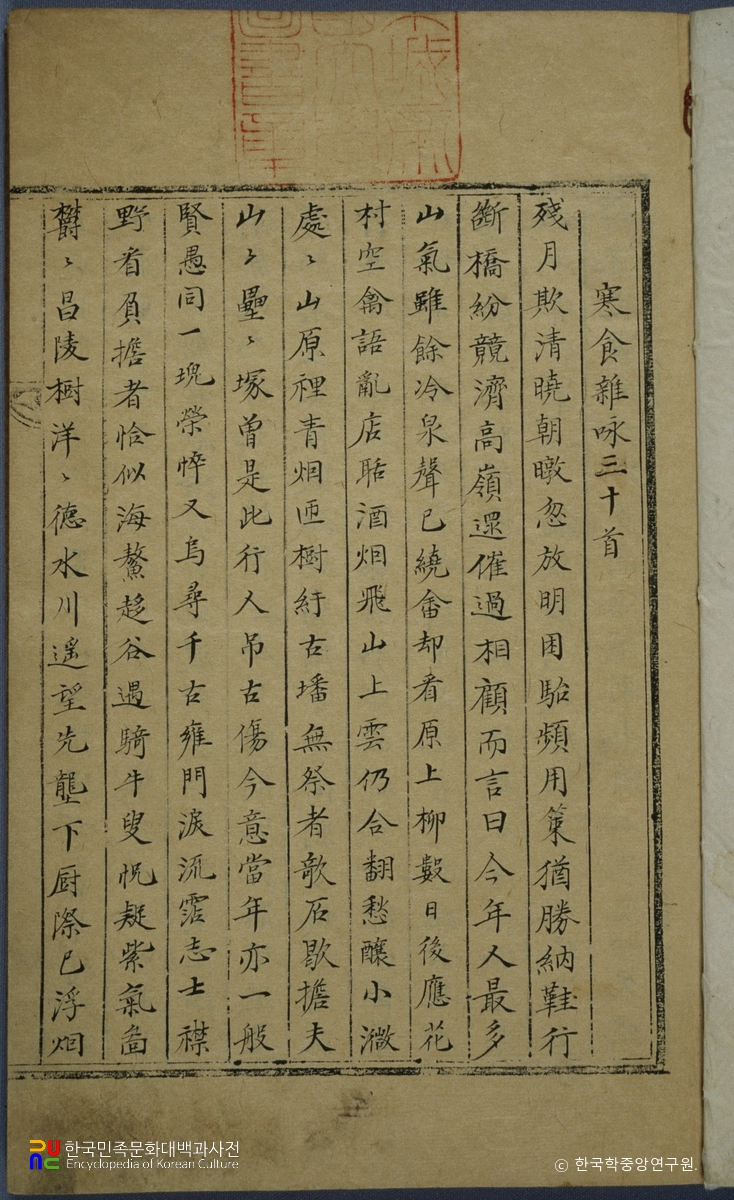 寒食雜咏三十首
殘月欺清曉朝暾忽放明困駘頻用策猶勝納鞋行
斷橋紛競濟高嶺還催過相顧而言曰今年人最多
山氣雖餘冷泉聲已繞畬却看原上柳數日後應花
村空禽語亂店聒酒烟飛山上雲仍合翻愁釀小微
處〻山原裡青烟匝樹紆古墦無祭者歌石歇擔夫
山〻壘〻塚曾是此行人吊古傷今意當年亦一般
賢愚同一塊榮悴又烏尋千古雍門淚流霑志士襟
野看負擔者恰似海鰲趍谷遇騎牛叟怳疑紫氣啚
欝〻昌陵樹洋〻德水川遥望先壟下厨際已浮烟
한국민족문화대백과사전
Encyclopedia of Korean Culture
ⓒ 한국학중앙연구원